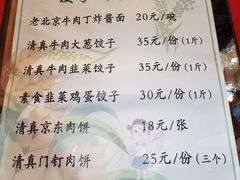 老北京牛肉丁炸酱面 20元/碗
清真牛肉大葱饺子 35元/份(1斤)
清真牛肉韭菜饺子 35元/份(1斤)
素食韭菜鸡蛋饺子 30元/份(1斤)
清真京东肉饼 18元/张
清真门钉肉饼 25元/份(三个)